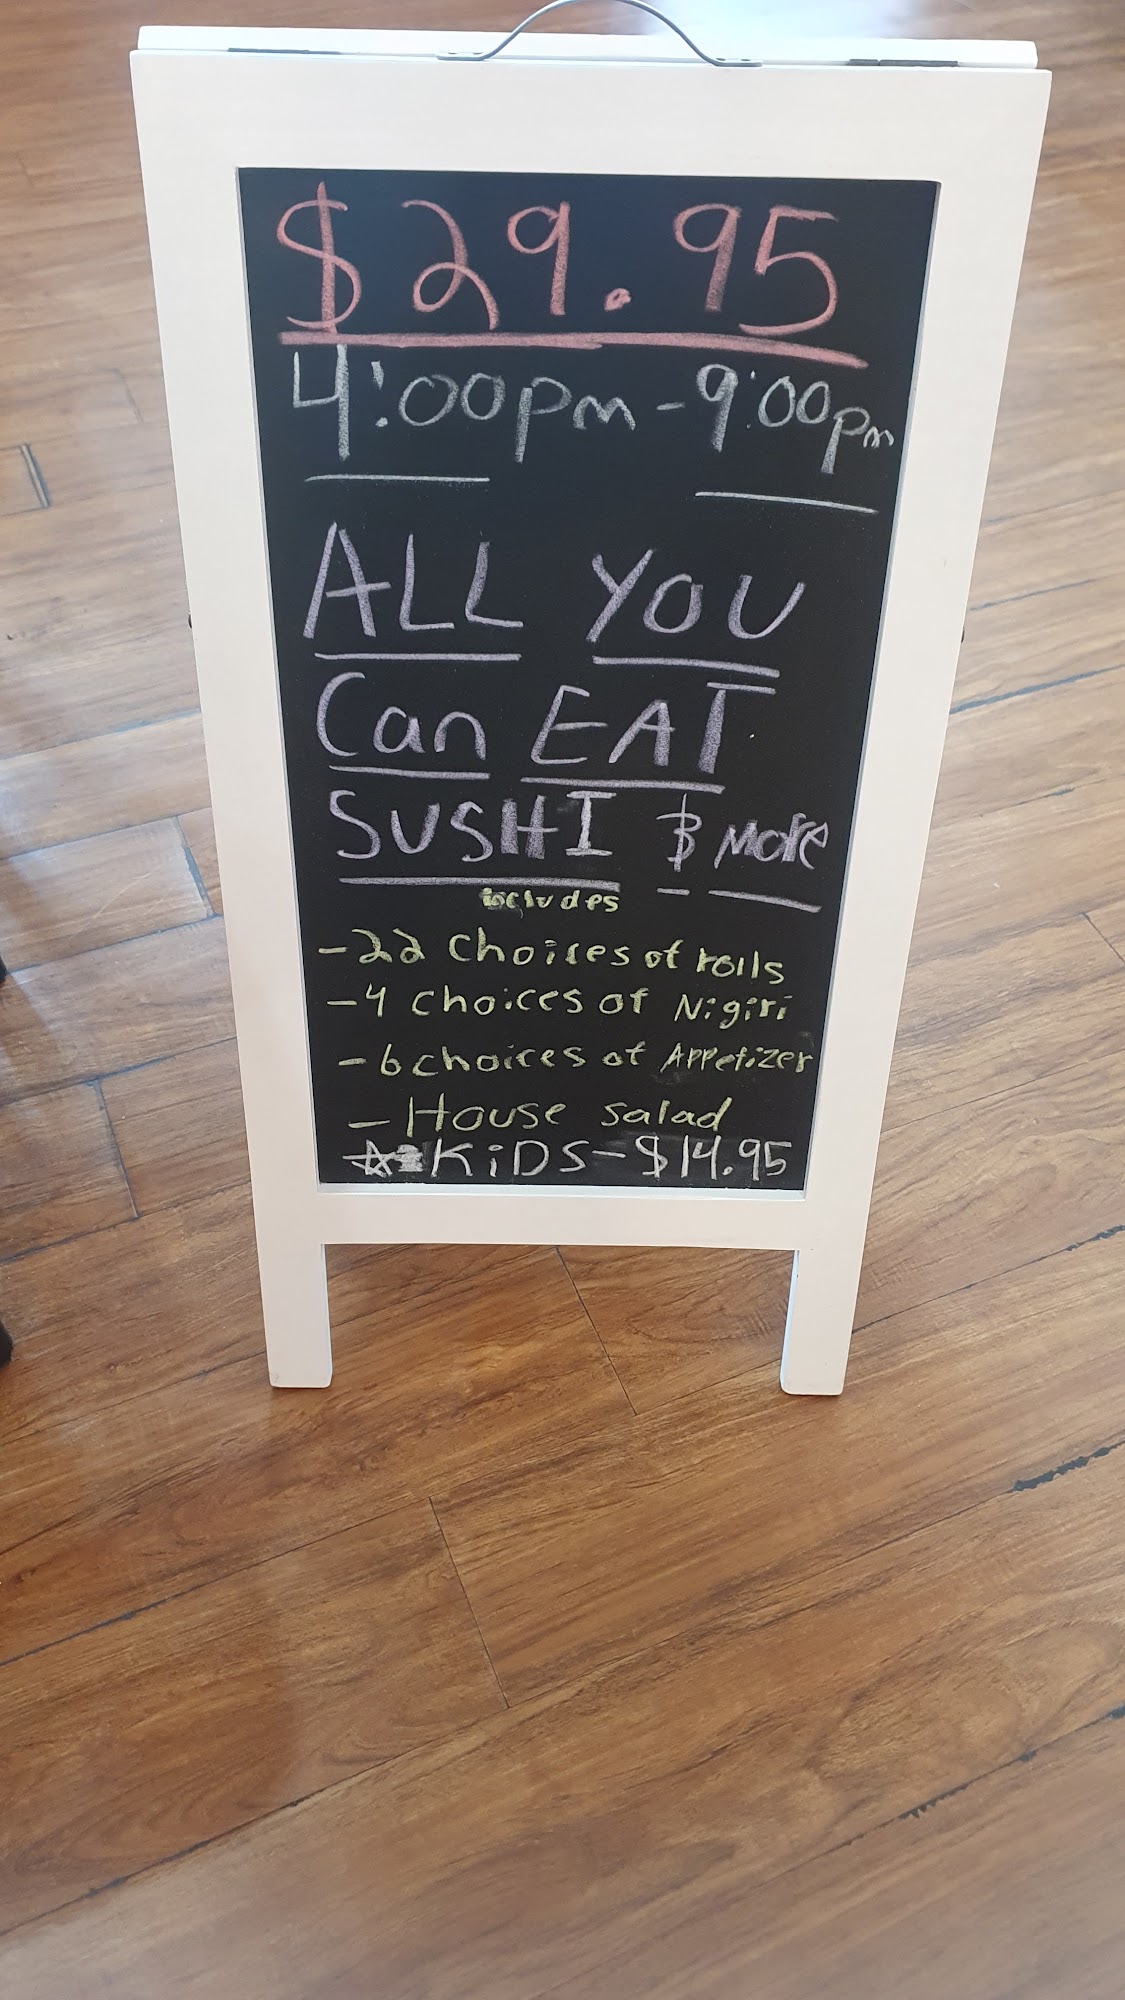 $29.95
4:00pm-9:00pm
ALL YOU
Can EAT
SUSHI & More
includes
-22 Choices of rolls
-4 Choices of Nigiri
-6 choices of Appetizer
-House salad
☆ KiDS-$14.95